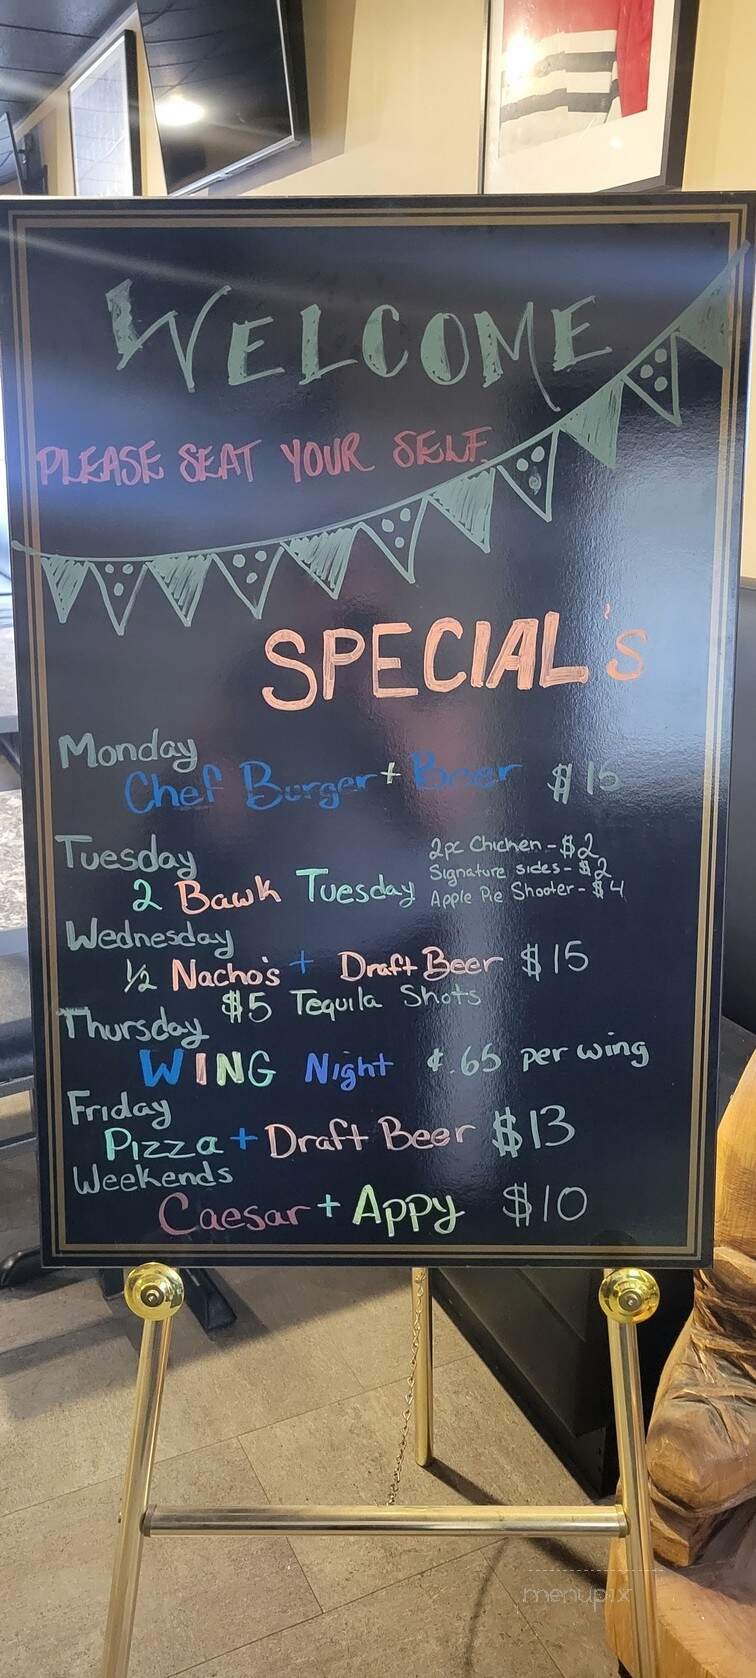 WELCOME
PLEASE SEAT YOUR SELF
SPECIAL'S
Monday
Chef Burger + Beer $15
Tuesday
2pc Chicken - $2
Signature sides - $2
2 Bawk Tuesday
Apple Pie Shooter - $4
Wednesday
1/2 Nacho's + Draft Beer $15
$5 Tequila Shots
Thursday
WING Night ¢.65 per wing
Friday
Pizza + Draft Beer $13
Weekends
Caesar + Appy $10
menupix